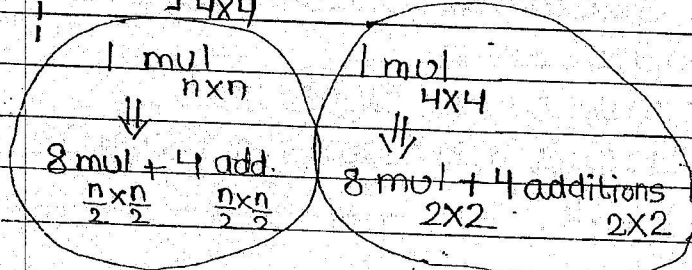 4x4
1 mul
nxn
⇓
8 mul + 4 add.
n/2 x n/2 n/2 x n/2
1 mul
4x4
⇓
8 mul + 4 additions
2x2 2x2